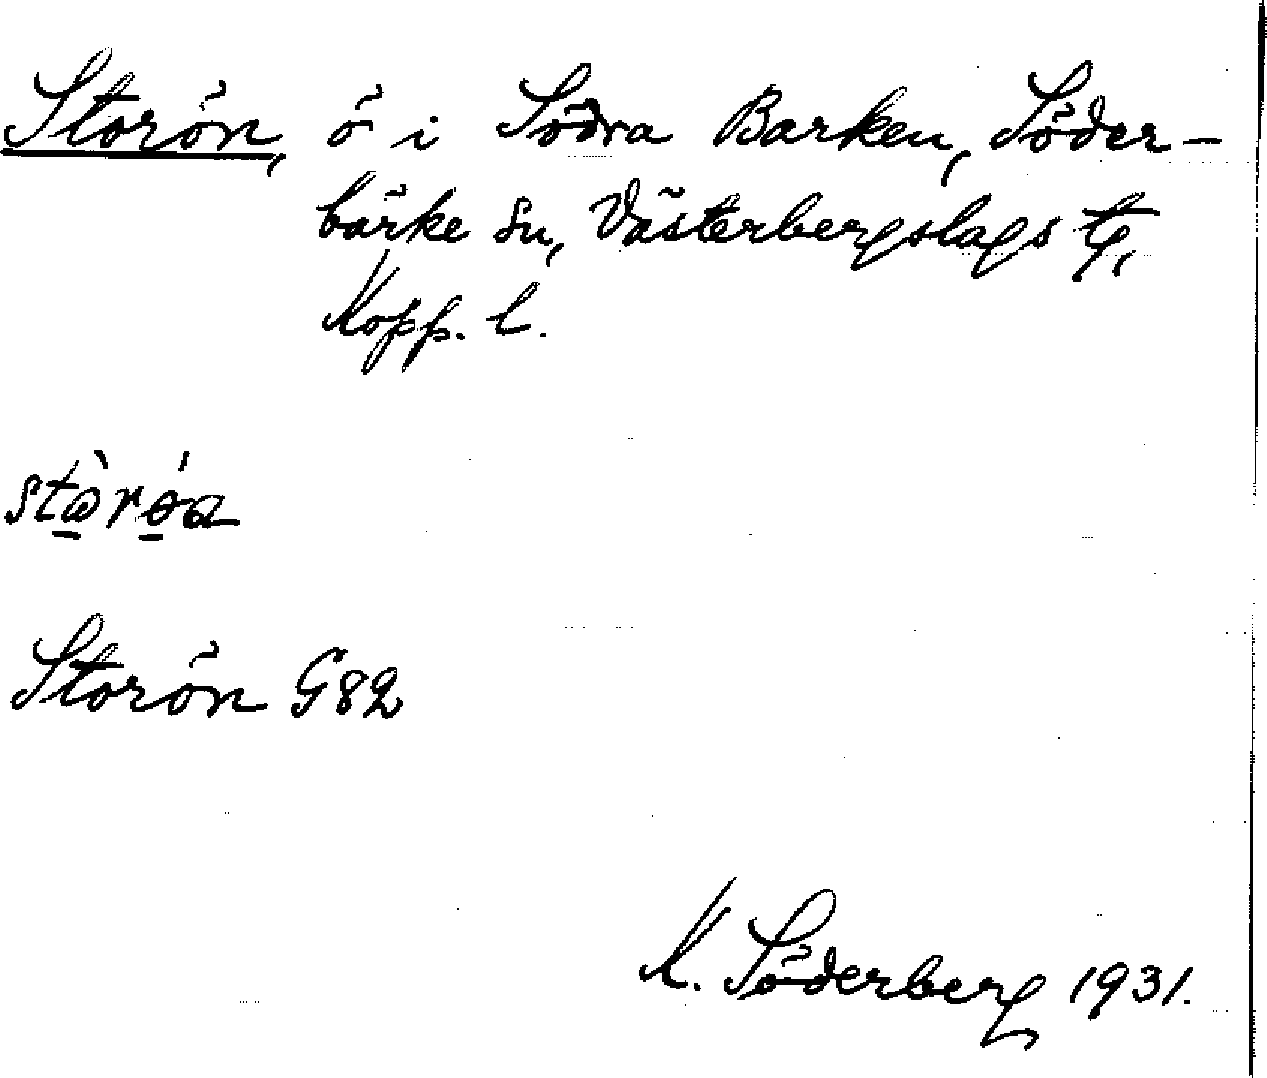 Storön, ö i Södra Barken, Söder-
bärke sn, Västerbergslags tg,
Kopp. l.
Storön G82
K. Söderberg 1931.